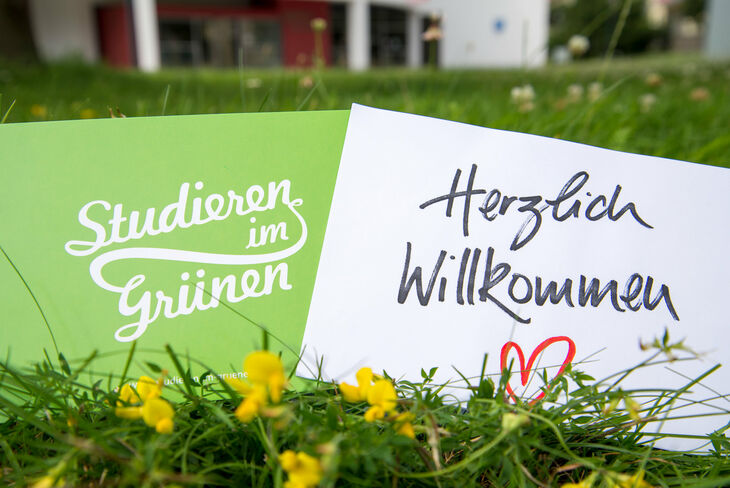 Studieren
im
Grünen
Herzlich
Willkommen